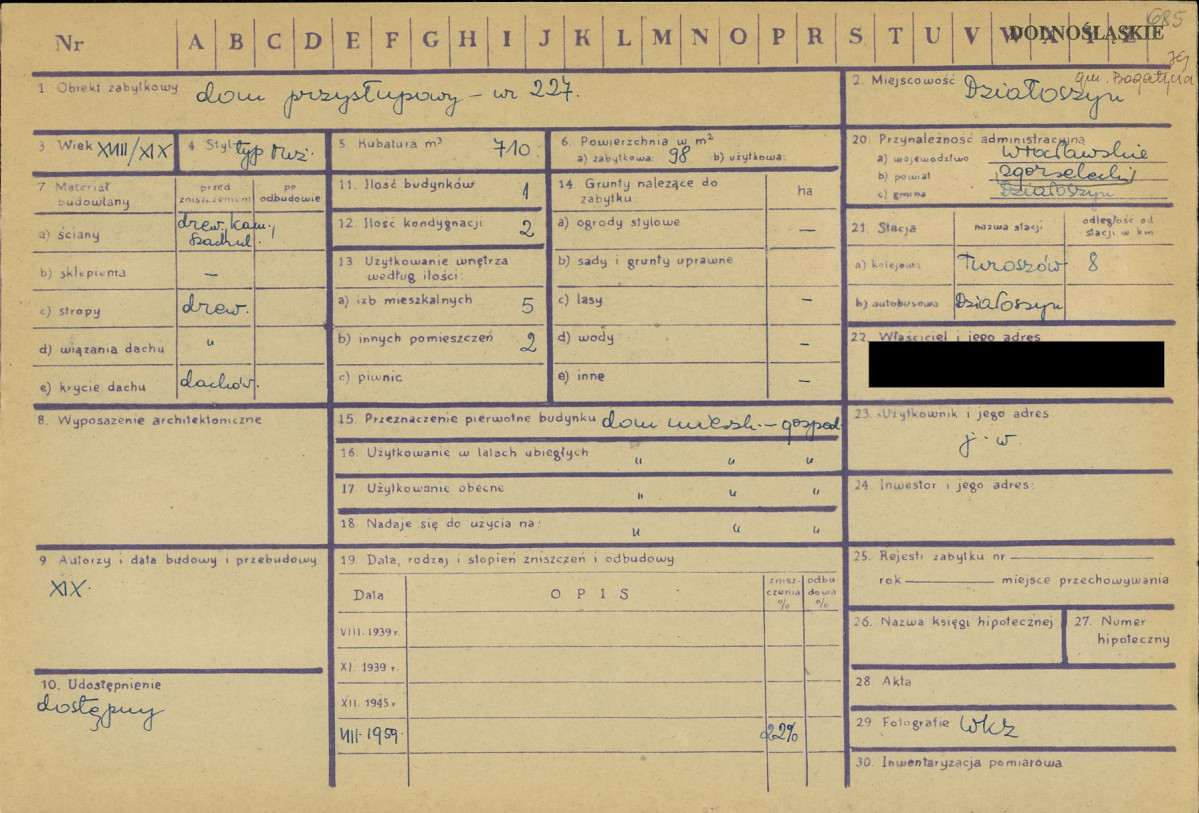 685
Nr A B C D E F G H I J K L M N O P R S T U V W X Y Z
DOLNOŚLĄSKIE
1 Obiekt zabytkowy dom przysłupowy – nr 227.
2. Miejscowość Działoszyn
gm. Bogatynia
3 Wiek XVIII/XIX
4. Styl typ
5. Kubatura m³ 710.
6. Powierzchnia w m²
a) zabytkowa: 98 b) użytkowa:
20. Przynależność administracyjna
a) województwo Wrocławskie
b) powiat zgorzelecki
c) gmina Działoszyn
7 Materiał budowlany
przed zniszczeniem
po odbudowie
a) ściany drew. kam., szachul.
b) sklepienia –
c) stropy drew.
d) wiązania dachu "
e) krycie dachu dachów.
11. Ilość budynków 1
12. Ilość kondygnacji 2
13 Użytkowanie wnętrza według ilości:
a) izb mieszkalnych 5
b) innych pomieszczeń 2
c) piwnic
14. Grunty należące do zabytku:
ha
a) ogrody stylowe –
b) sady i grunty uprawne
c) lasy –
d) wody –
e) inne –
21. Stacja
nazwa stacji
odległość od stacji w km
a) kolejowa Turoszów 8
b) autobusowa Działoszyn
22. Właściciel i jego adres
8. Wyposażenie architektoniczne
15. Przeznaczenie pierwotne budynku dom mieszk. – gospod.
16. Użytkowanie w latach ubiegłych " " "
17. Użytkowanie obecne " " "
18. Nadaje się do użycia na: " " "
23. Użytkownik i jego adres
j. w
24. Inwestor i jego adres:
9 Autorzy i data budowy i przebudowy
XIX.
19. Data, rodzaj i stopień zniszczeń i odbudowy
Data
OPIS
znisz-
czenia
%
odbu-
dowa
%
VIII.1939 r.
XI. 1939 r.
XII. 1945 r.
VIII.1959. 22%
10. Udostępnienie
dostępny
25. Rejestr zabytku nr
rok miejsce przechowywania
26. Nazwa księgi hipotecznej
27. Numer hipoteczny
28 Akta
29 Fotografie WKZ
30. Inwentaryzacja pomiarowa